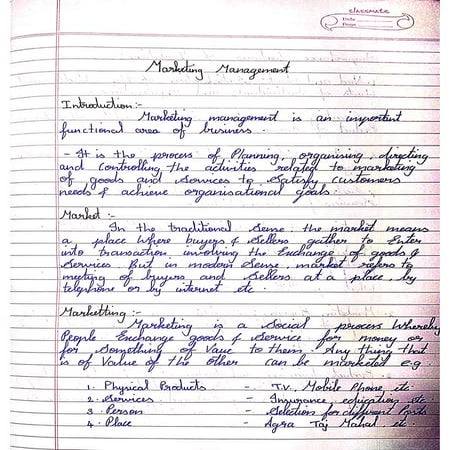 classmate
Date
Page
Marketing Management
Introduction:-
Marketing management is an important
functional area of business.
- It is the process of Planning, organising, directing
and controlling the activities related to marketing
of goods and services to satisfy customers
needs & achieve organisational goals.
Market :-
In the traditional sense the market means
a place where buyers & sellers gather to Enter
into transaction involving the Exchange of goods &
services. But in modern sense, market refers to
meeting of buyers and sellers at a place, by
telephone or by internet etc.
Marketting :-
Marketing is a Social process Whereby
People Exchange goods & service for money or
for Something of Value to them. Any thing that
is of Value of the other can be marketed e.g.
1. Physical Products - T.V. Mobile Phone, etc.
2. Services - Insurance education etc.
3. Person - Selection for different Posts
4. Place - Agra Taj Mahal etc.